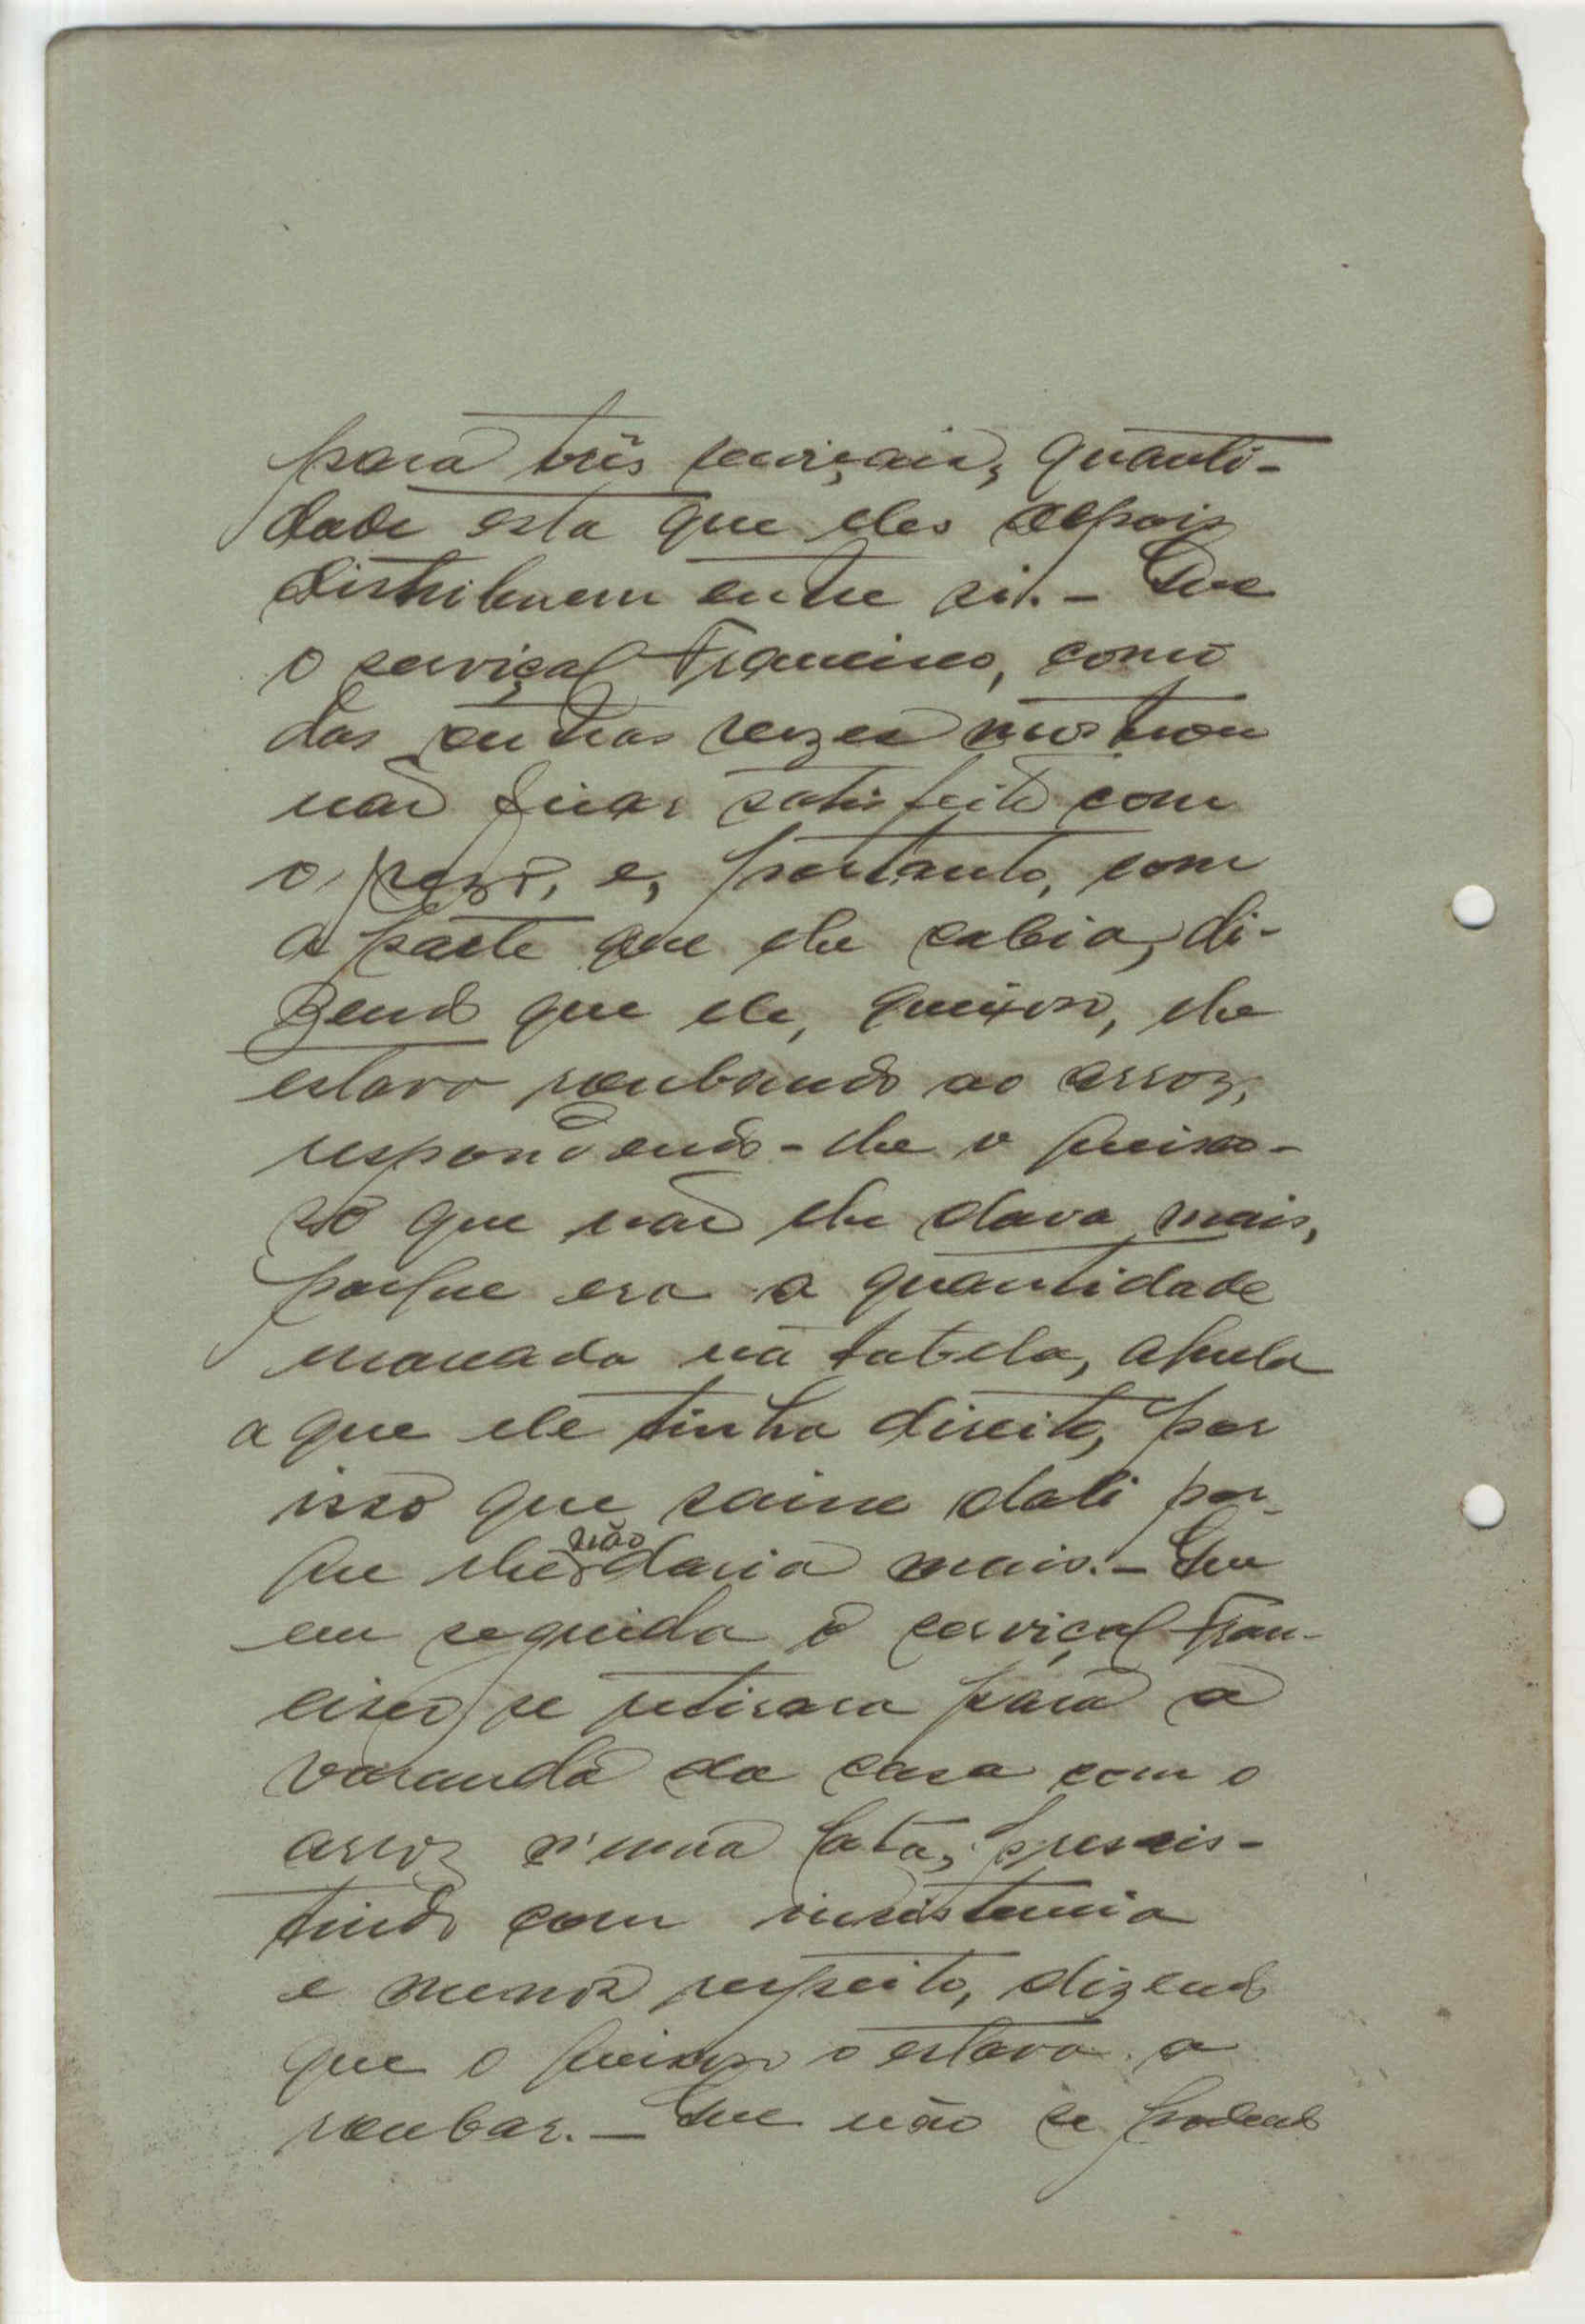 para três serviçais, quanti-
dade esta que eles depois
distribuem entre si. - Que
o serviçal Francisco, como
das outras vezes mostrou
não ficar satisfeito com
o pezo, e, portanto, com
a parte que lhe cabia, di-
zendo que ele, queixoso, lhe
estava roubando ao arroz,
respondendo-lhe o queixo-
so que não lhe dava mais,
porque era a quantidade
marcada na tabela, aquela
a que ele tinha direito, por
isso que saisse dali por-
que lhe não daria mais. - Que
em seguida o serviçal Fran-
cisco se retirara para a
varanda da casa com o
arroz n'uma lata, persis-
tindo com insistencia
e menos respeito, dizendo
que o queixoso o estava a
roubar. - Que não se podendo